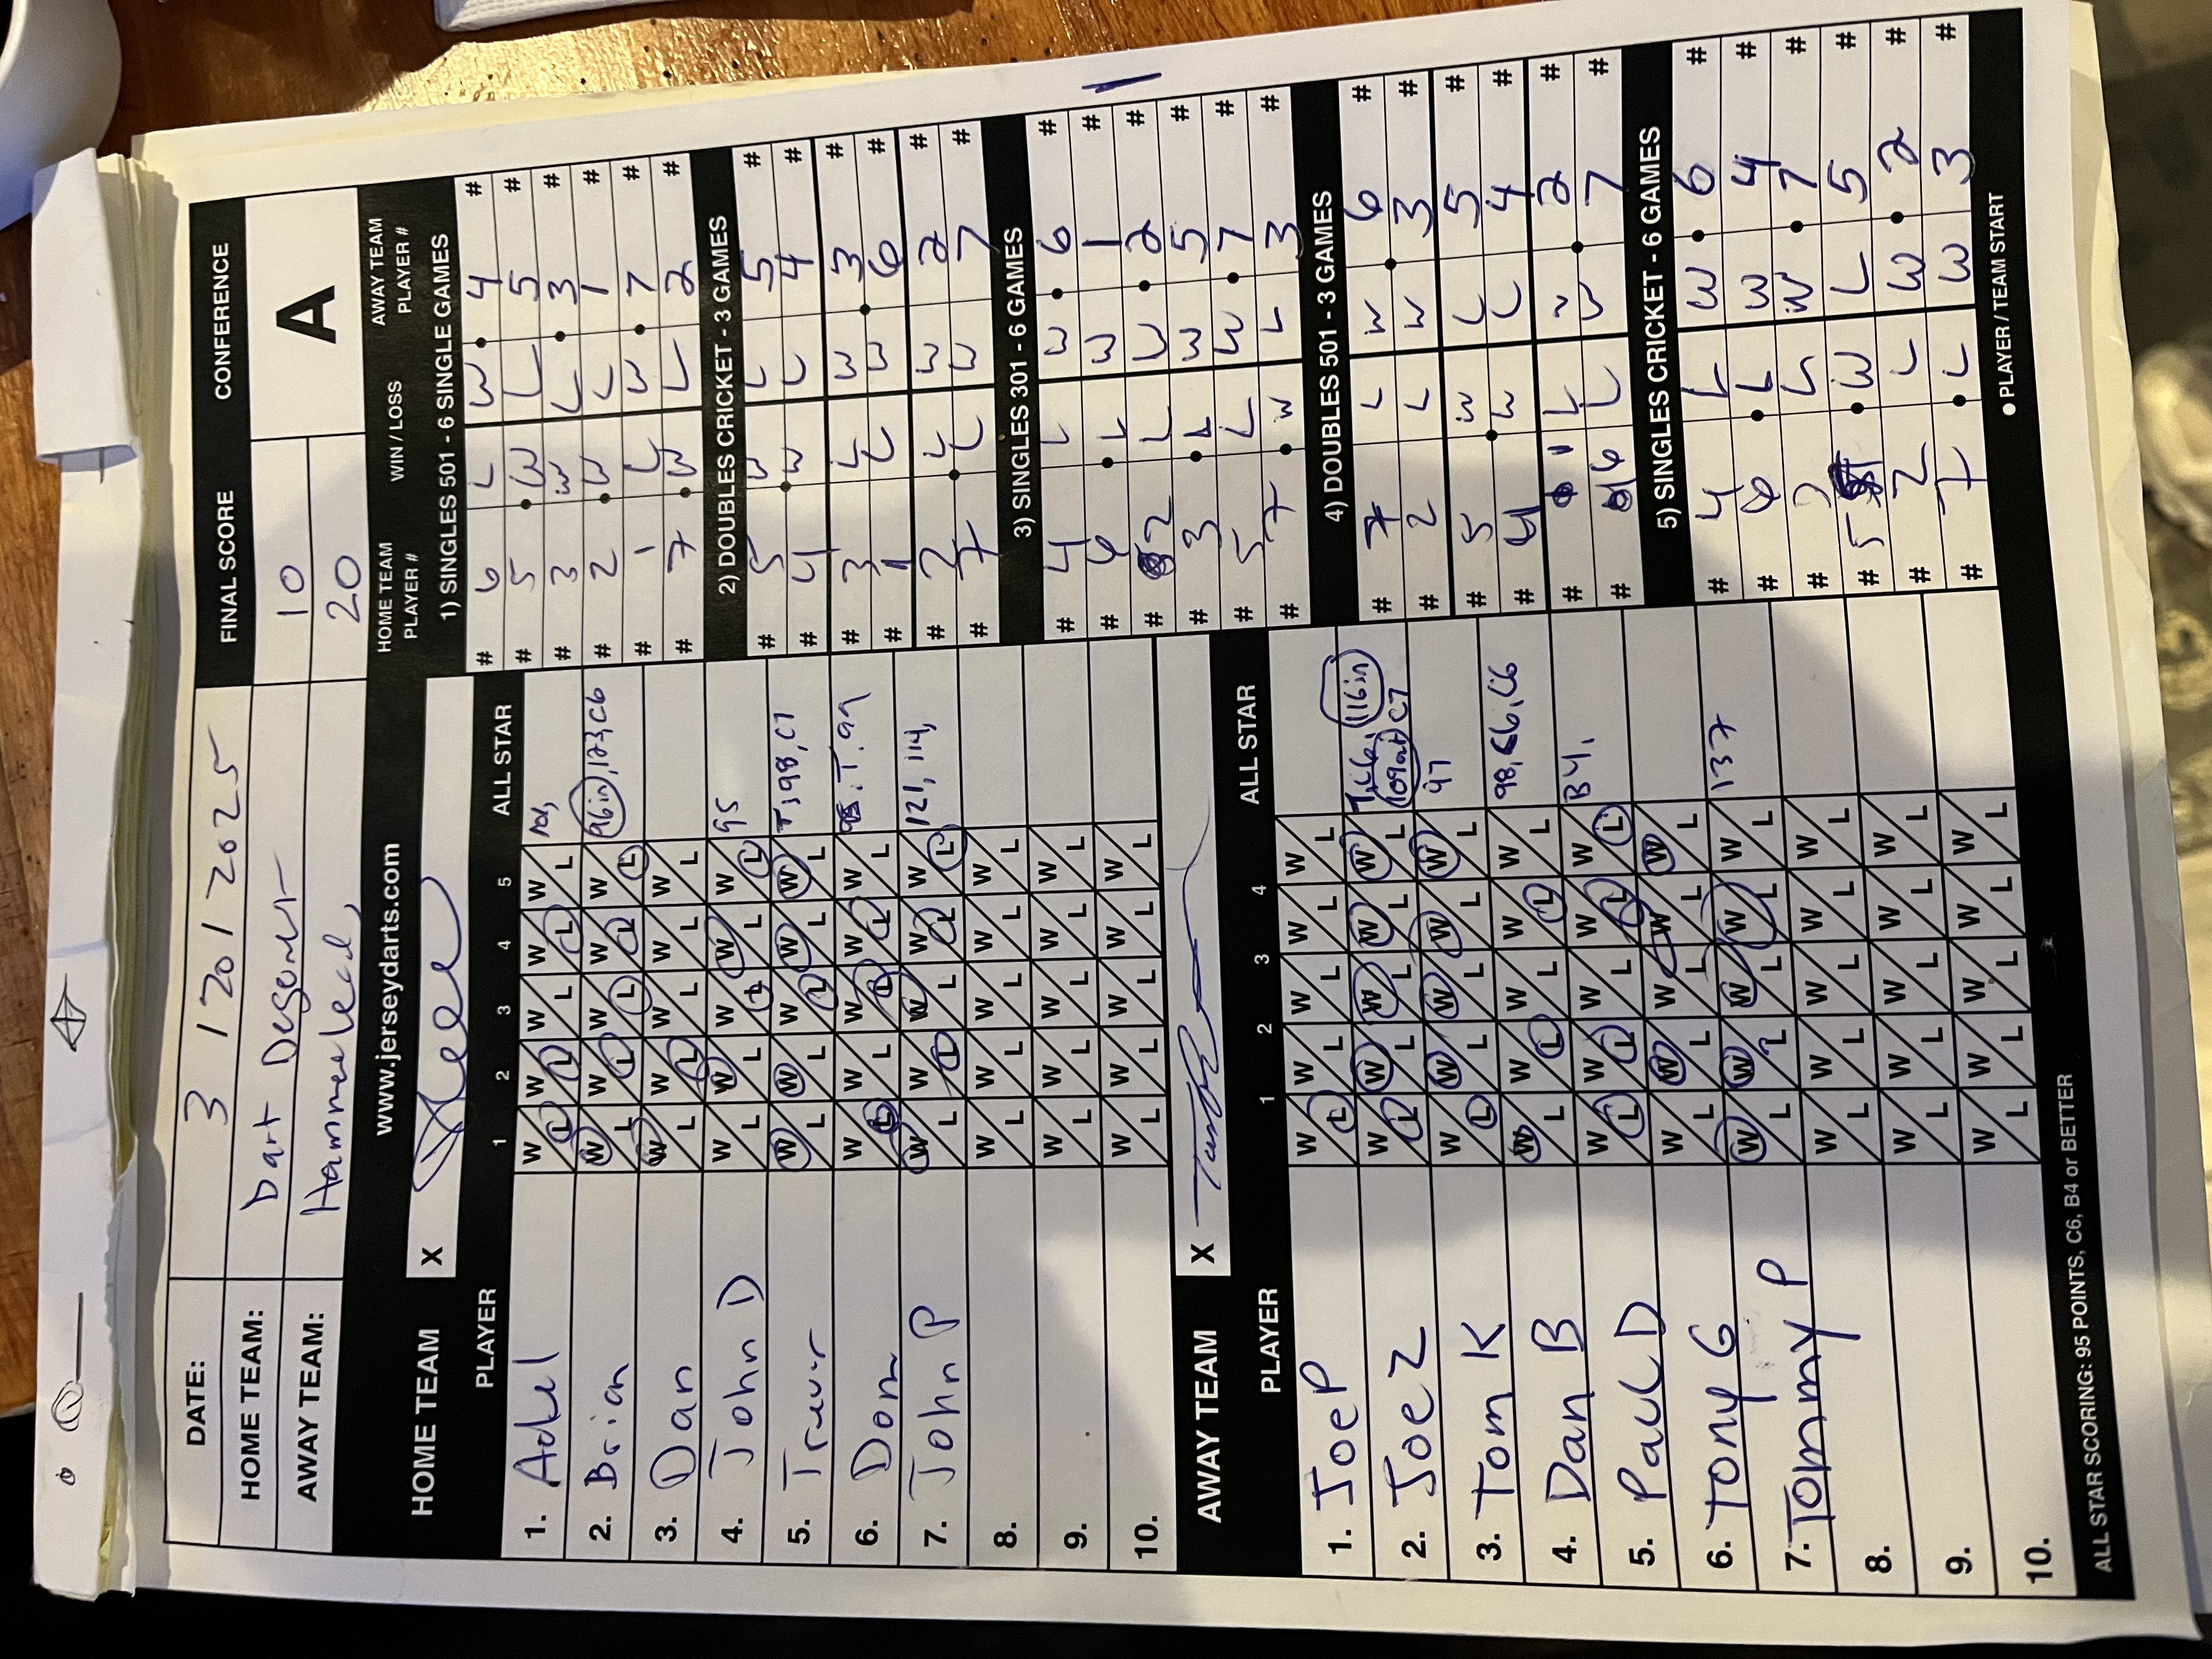 DATE: 3 / 20 / 2025 FINAL SCORE CONFERENCE
HOME TEAM: Dart 10 A
AWAY TEAM: 20
www.jerseydarts.com
HOME TEAM X
PLAYER 1 2 3 4 5 ALL STAR
1. Adel W L W L W L W L W L
2. Brian W L W L W L W L W L 96in, 123, C6
3. Dan W L W L W L W L W L
4. John D W L W L W L W L W L 95
5. Trevor W L W L W L W L W L T, 98, C7
6. Dom W L W L W L W L W L T, 99
7. John P W L W L W L W L W L 121, 114,
8. W L W L W L W L W L
9. W L W L W L W L W L
10. W L W L W L W L W L
AWAY TEAM X
PLAYER 1 2 3 4 ALL STAR
1. Joe P W L W L W L W L W L
2. Joe Z W L W L W L W L W L 116in 109out C7
3. Tom K W L W L W L W L W L 97
4. Dan B W L W L W L W L W L 98, C6, C6
5. Paul D W L W L W L W L W L B4,
6. Tony G W L W L W L W L W L
7. Tommy P W L W L W L W L W L 137
8. W L W L W L W L W L
9. W L W L W L W L W L
10. W L W L W L W L W L
ALL STAR SCORING: 95 POINTS, C6, B4 or BETTER
HOME TEAM PLAYER # WIN / LOSS AWAY TEAM PLAYER #
1) SINGLES 501 - 6 SINGLE GAMES
# 6 L W 4 #
# 5 W L 5 #
# 3 W L 3 #
# 2 W L 1 #
# 1 L W 7 #
# 7 W L 2 #
2) DOUBLES CRICKET - 3 GAMES
# 5 W L 5 #
# 4 W L 4 #
# 3 L W 3 #
# 1 L W 6 #
# 2 L W 2 #
# 7 L W 7 #
3) SINGLES 301 - 6 GAMES
# 4 L W 6 #
# 6 L W 1 #
# 2 L W 2 #
# 3 L W 5 #
# 5 L W 7 #
# 7 W L 3 #
4) DOUBLES 501 - 3 GAMES
# 7 L W 6 #
# 2 L W 3 #
# 5 W L 5 #
# 4 W L 4 #
# 1 L W 2 #
# 6 L W 7 #
5) SINGLES CRICKET - 6 GAMES
# 4 L W 6 #
# 6 L W 4 #
# L W 7 #
# 5 W L 5 #
# 2 L W 2 #
# 7 L W 3 #
● PLAYER / TEAM START